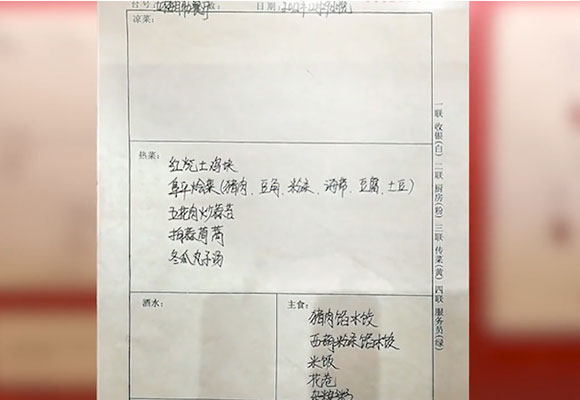 台号: 数: 日期: 2012年12月
凉菜:
热菜:
红烧土鸡块
阜平烩菜(猪肉、豆角、粉条、海带、豆腐、土豆)
五花肉炒蒜苔
拍蒜茼蒿
冬瓜丸子汤
酒水:
主食:
猪肉馅水饺
西葫粉条馅水饺
米饭
花卷
杂粮粥
一联 收银(白) 二联 厨房(粉) 三联 传菜(黄) 四联 服务员(绿)